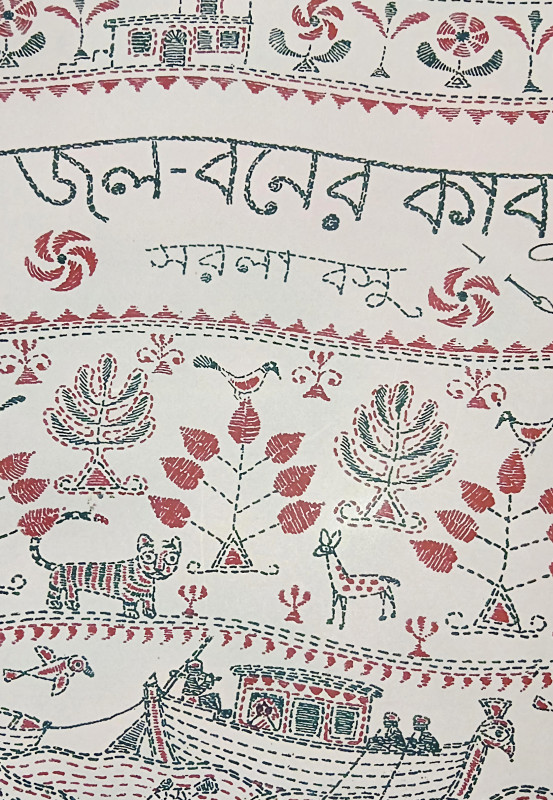 জল-বনের কাব
সরলা বসু